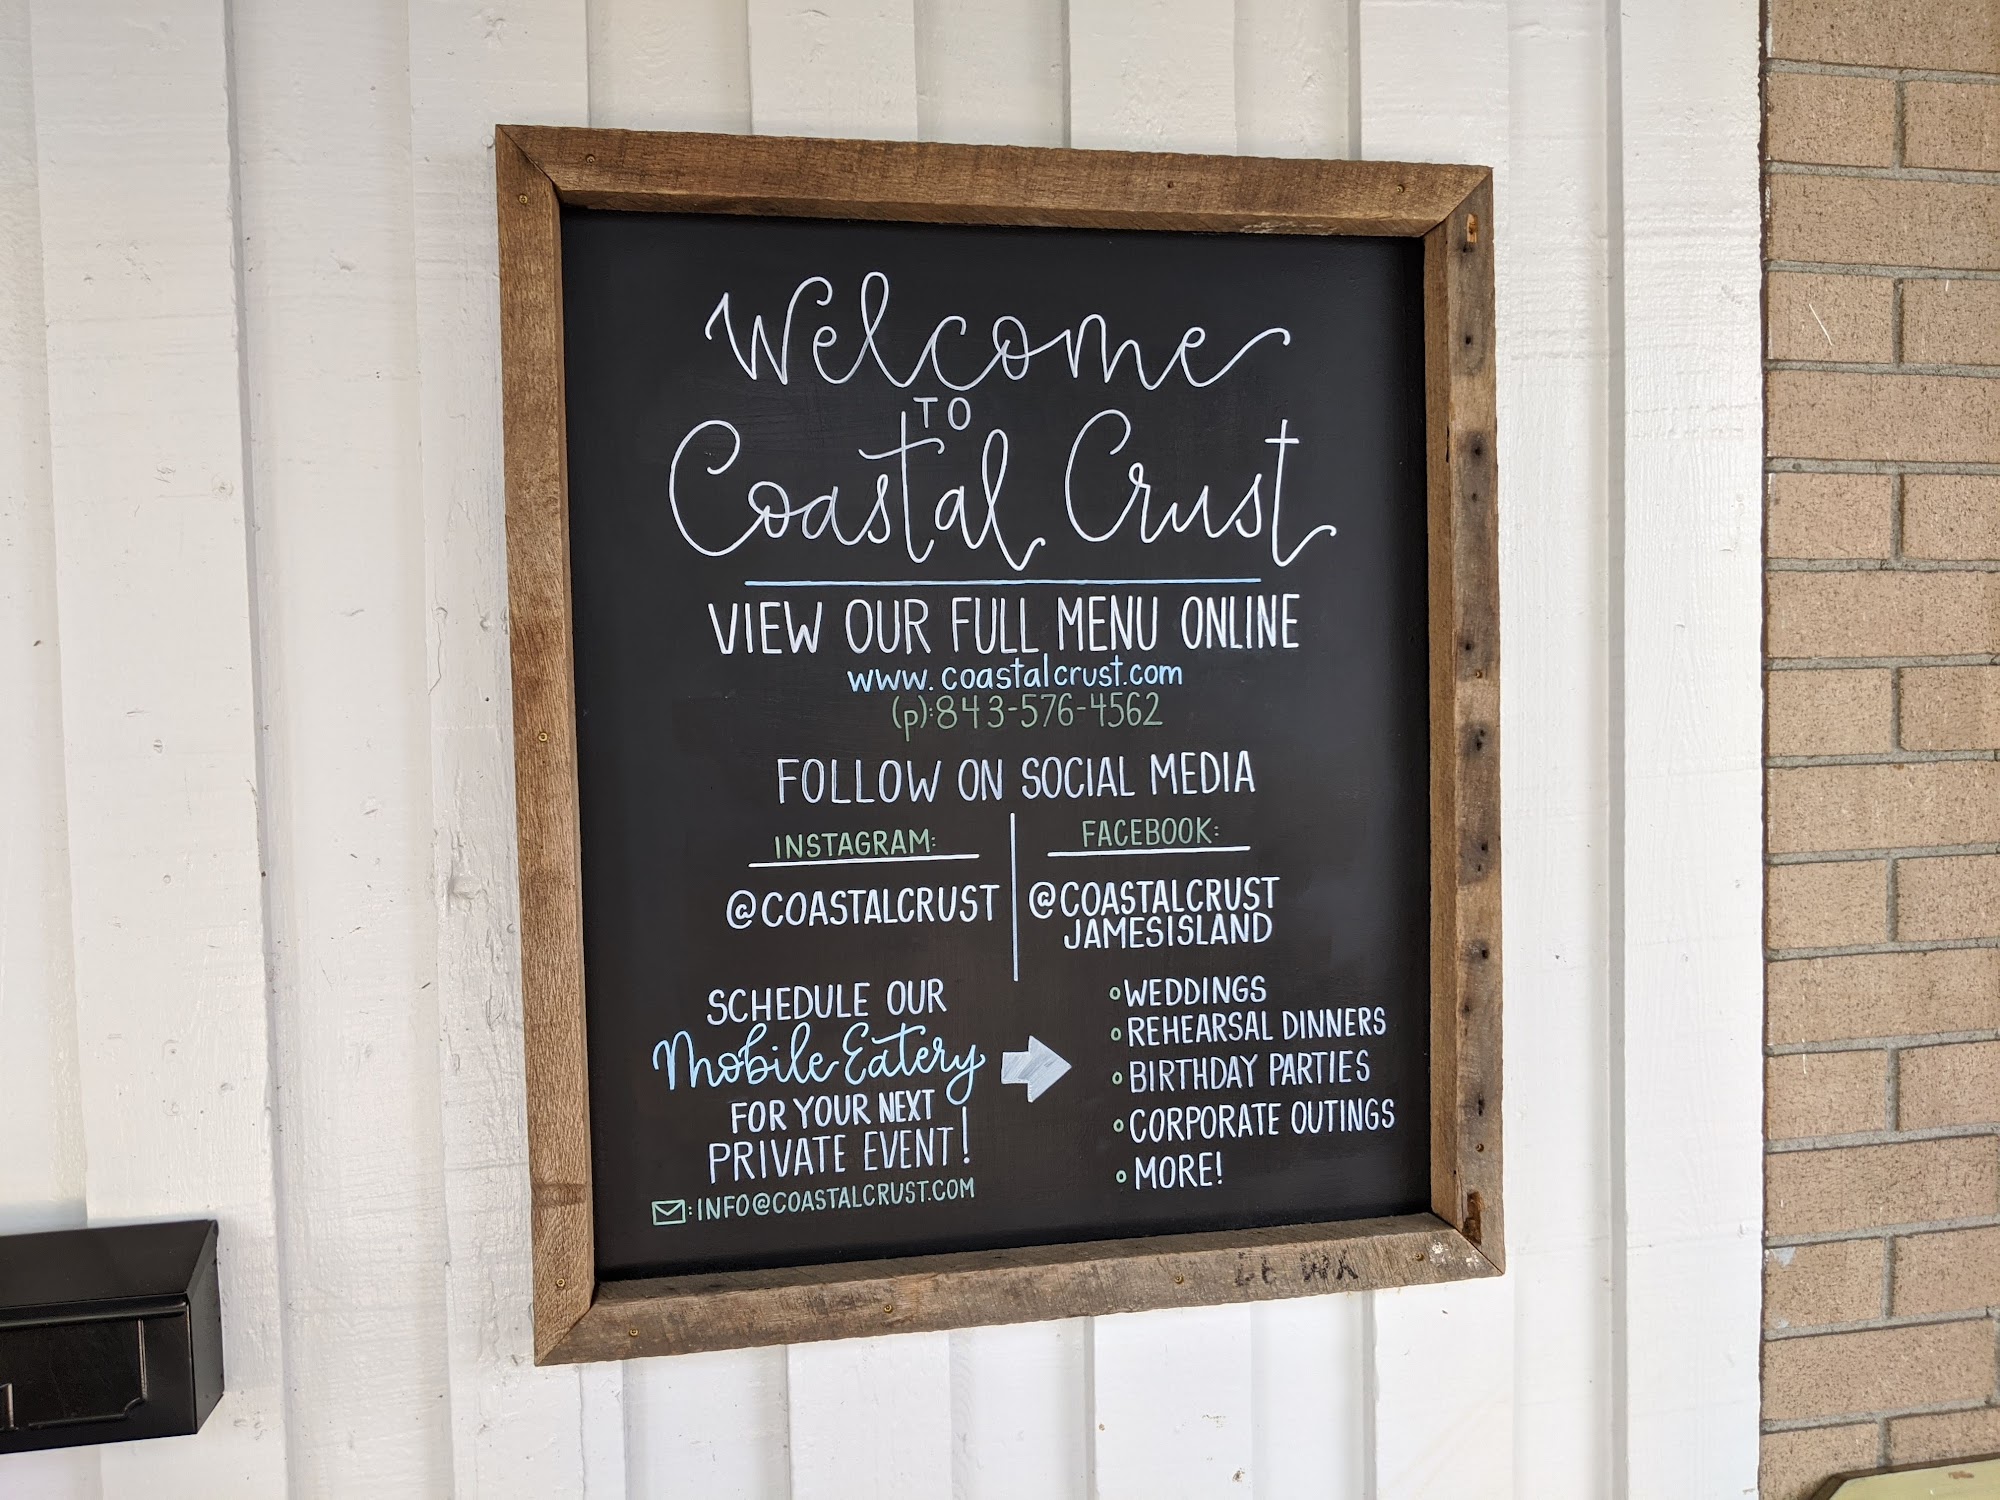 Welcome
TO
Coastal Crust
VIEW OUR FULL MENU ONLINE
www.coastalcrust.com
(p):843-576-4562
FOLLOW ON SOCIAL MEDIA
INSTAGRAM:
@COASTALCRUST
FACEBOOK:
@COASTALCRUST
JAMESISLAND
SCHEDULE OUR
Mobile Eatery
FOR YOUR NEXT
PRIVATE EVENT!
:INFO@COASTALCRUST.COM
WEDDINGS
REHEARSAL DINNERS
BIRTHDAY PARTIES
CORPORATE OUTINGS
MORE!